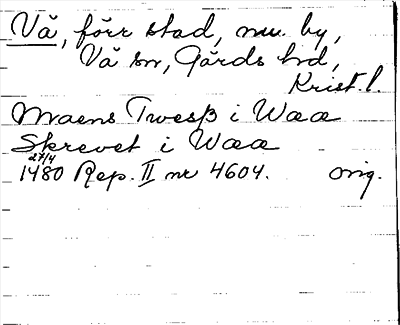 Vä, förr stad, nu. by,
Vä sn, Gärds hd,
Krist. l.
Maens Twesß i Waa
Skrevet i Waa
27/4
1480 Rep. II nr 4604. orig.